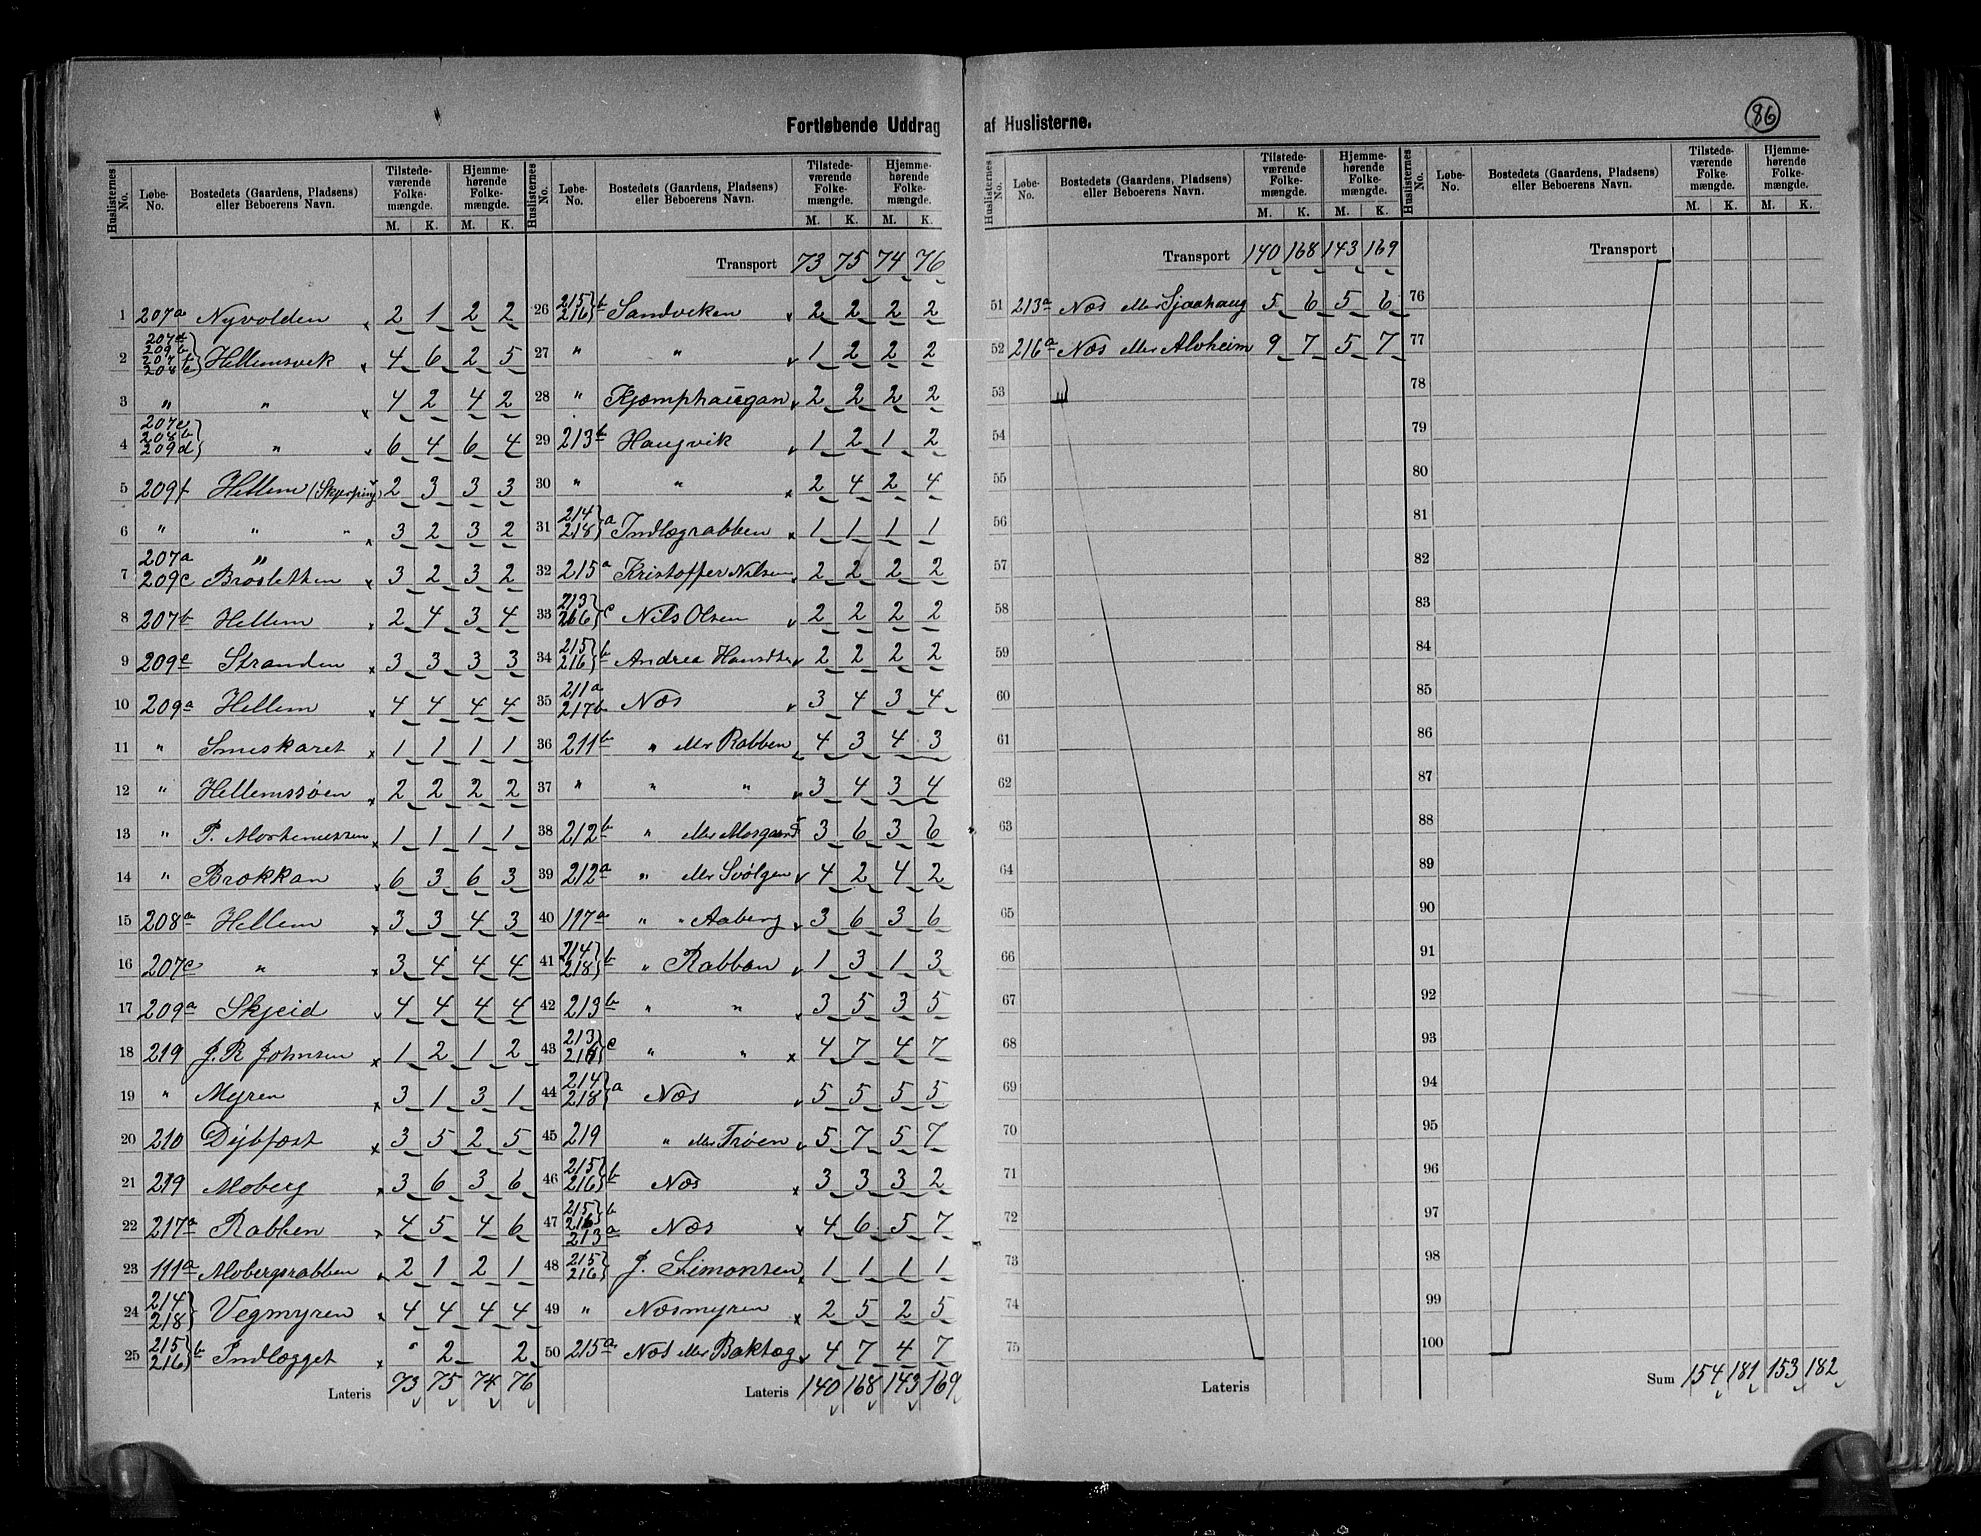 86
Fortløbende Uddrag af Huslisterne.
Huslisternes No. Løbe-No. Bostedets (Gaardens, Pladsens) eller Beboerens Navn. Tilstedeværende Folkemængde. M. K. Hjemmehørende Folkemængde. M. K.
1 207a Nyvolden 2 1 2 2
2 209b Hellemsvik 4 6 2 5
3 " " 4 2 4 2
4 208b 209d " 6 4 6 4
5 209f Hellem (Skjerping) 2 3 3 3
6 " " " 3 2 3 2
7 207a 209c Brosletten 3 2 3 2
8 207b Hellem 2 4 3 4
9 209e Stranden 3 3 3 3
10 209a Hellem 4 4 4 4
11 " Smiskaret 1 1 1 1
12 " Hellemssøen 2 2 2 2
13 " P. Mortenussen 1 1 1 1
14 " Brokkan 6 3 6 3
15 208a Hellem 3 3 4 3
16 207c " 3 4 4 4
17 209a Skjeid 4 4 4 4
18 219 J. R Johnsen 1 2 1 2
19 " Myren 3 1 3 1
20 210 Dybfæst 3 5 2 5
21 219 Moberg 3 6 3 6
22 217a Rabben 4 5 4 6
23 111a Mobergsrabben 2 1 2 1
24 214 218 Vegmyren 4 4 4 4
25 215 216 b Indlægget " 2 2
Lateris 73 75 74 76
Huslisternes No. Løbe-No. Bostedets (Gaardens, Pladsens) eller Beboerens Navn. Tilstedeværende Folkemængde. M. K. Hjemmehørende Folkemængde. M. K.
Transport 73 75 74 76
26 215 216 b Sandviken 2 2 2 2
27 " " 1 2 2 2
28 " Kjæmphaugan 2 2 2 2
29 213b Haugvik 1 2 1 2
30 " " 2 4 2 4
31 214 218 a Indlægrabben 1 1 1 1
32 215a Kristoffer Nilsen 2 2 2 2
33 213 216 c Nils Olsen 2 2 2 2
34 215 216 b Andrea Hansdtr 2 2 2 2
35 211a 217b Næs 3 4 3 4
36 211b " eller Rabben 4 3 4 3
37 " " " 3 4 3 4
38 212b " eller Morgaard 3 6 3 6
39 212a " eller Svølgen 4 2 4 2
40 197a " " Aaberg 3 6 3 6
41 214 218 b " Rabban 1 3 1 3
42 213b " " 3 5 3 5
43 213 216 c " " 4 7 4 7
44 214 218 a Næs 5 5 5 5
45 219 " eller Trøen 5 7 5 7
46 215 216 b Næs 3 3 3 2
47 215 216 b 213 a Næs 4 6 5 7
48 215 216 J. Simonsen 1 1 1 1
49 " Næsmyren 2 5 2 5
50 215a Næs eller Baktæg 4 7 4 7
Lateris 140 168 143 169
Huslisternes No. Løbe-No. Bostedets (Gaardens, Pladsens) eller Beboerens Navn. Tilstedeværende Folkemængde. M. K. Hjemmehørende Folkemængde. M. K.
Transport 140 168 143 169
51 213a Næs eller Sjaahaug 5 6 5 6
52 216a Næs eller Alvheim 9 7 5 7
53
54
55
56
57
58
59
60
61
62
63
64
65
66
67
68
69
70
71
72
73
74
75
Lateris
Huslisternes No. Løbe-No. Bostedets (Gaardens, Pladsens) eller Beboerens Navn. Tilstedeværende Folkemængde. M. K. Hjemmehørende Folkemængde. M. K.
Transport
76
77
78
79
80
81
82
83
84
85
86
87
88
89
90
91
92
93
94
95
96
97
98
99
100
Sum 154 181 153 182